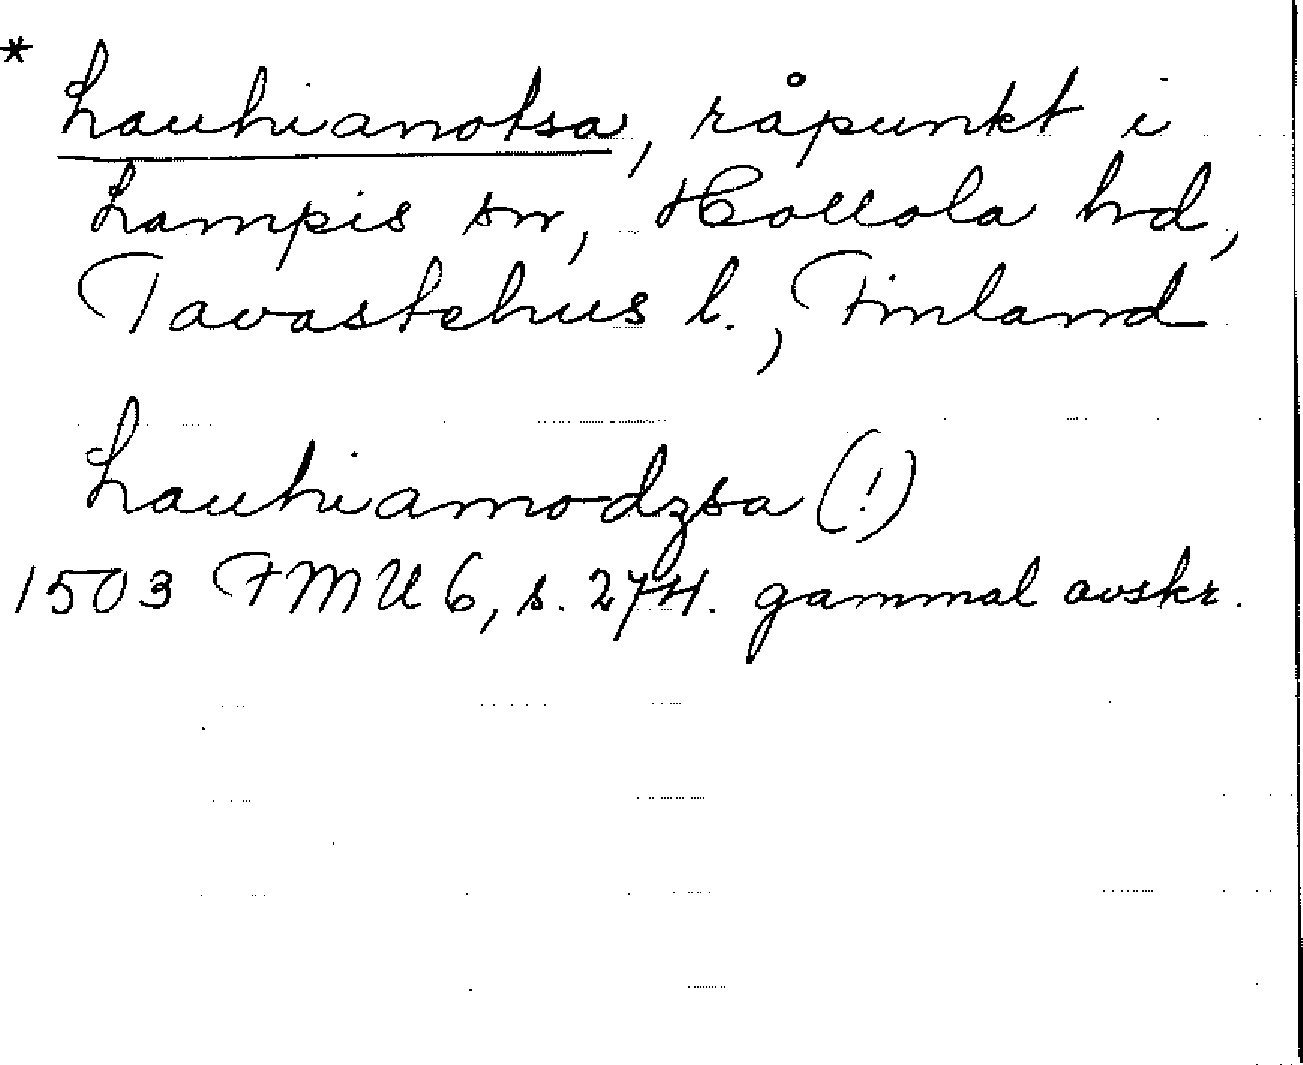 * Lauhianotsa, råpunkt i
Lampis sn, Hollola hd,
Tavastehus l., Finland
Lauhiamodzsa (!)
1503 FMU 6, s. 274. gammal avskr.